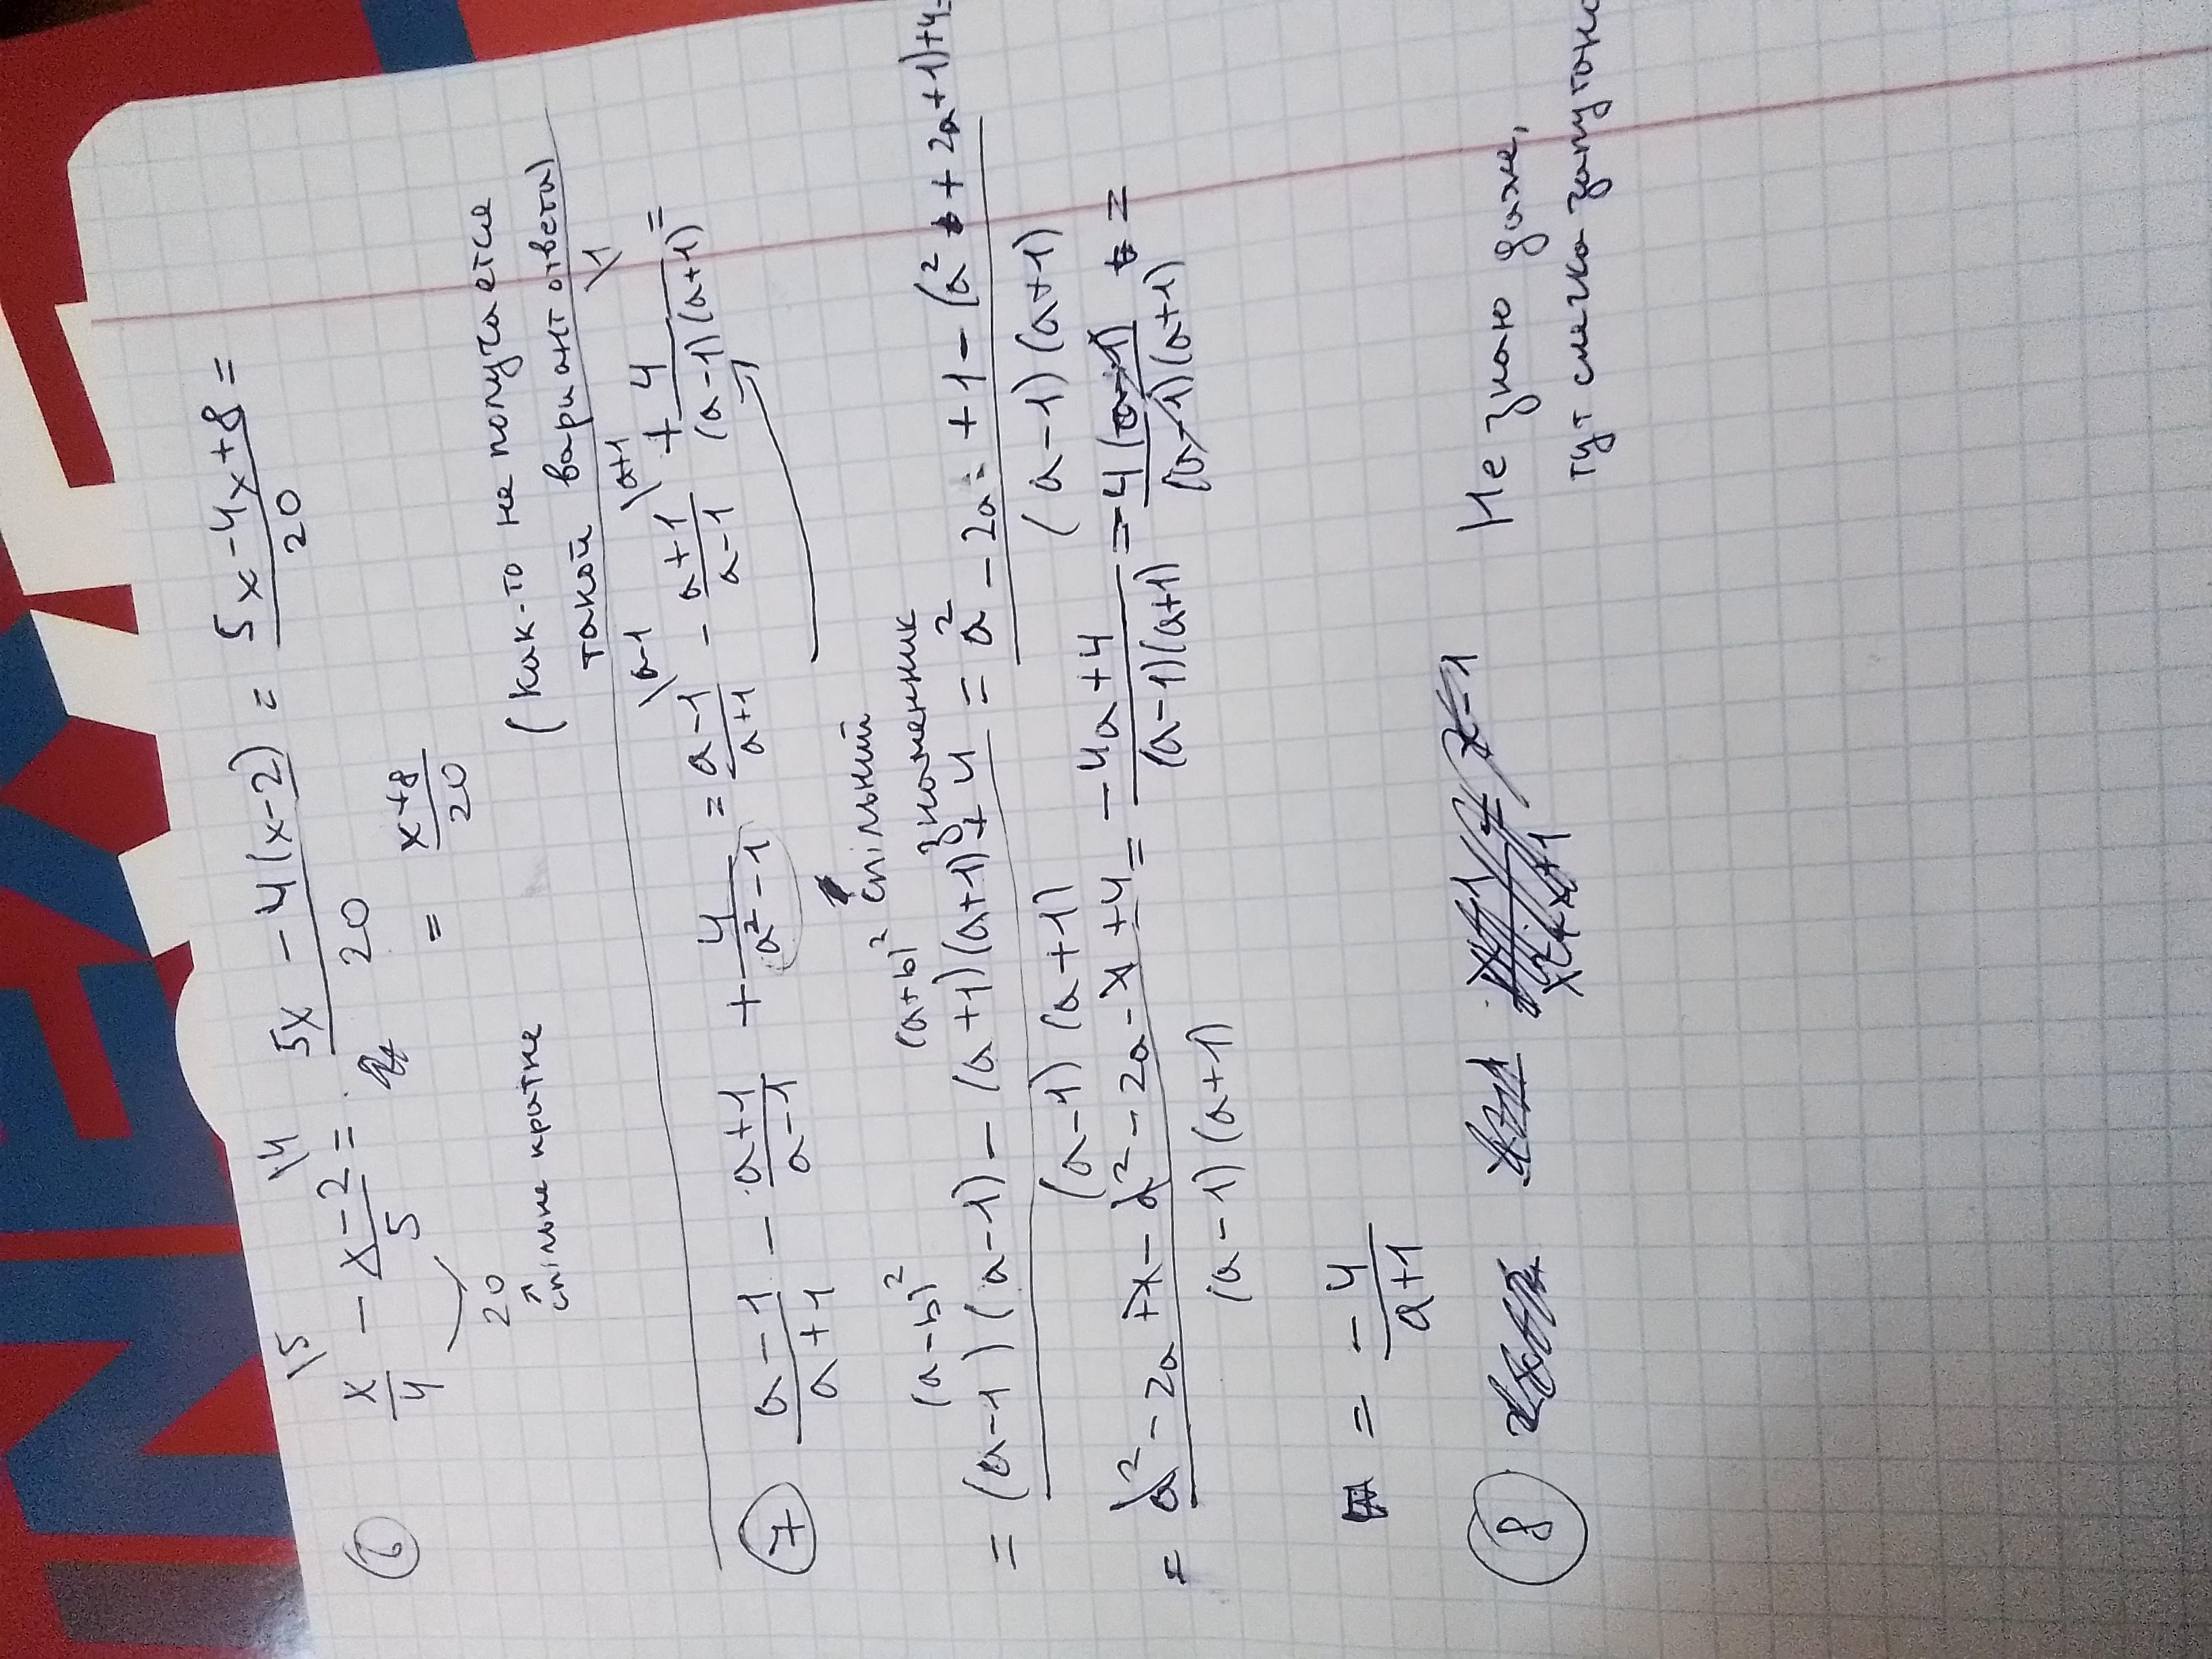 6 x/4 \5 − x−2/5 \4 = 5x − 4(x−2)/20 = 5x−4x+8/20 =
20
спільне кратне
= x+8/20
(как-то не получается
такой вариант ответа)
7 a−1/a+1 − a+1/a−1 + 4/a²−1 = a−1/a+1 \a−1 − a+1/a−1 \a+1 + 4/(a−1)(a+1) \1 =
спільний
знаменник
(a−b)² (a+b)²
= (a−1)(a−1) − (a+1)(a+1) + 4/(a−1)(a+1) = a² − 2a + 1 − (a² + 2a+1)+4/(a−1)(a+1) =
= a² − 2a + 1 − a² − 2a − 1 + 4/(a−1)(a+1) = −4a+4/(a−1)(a+1) = −4(a−1)/(a−1)(a+1) =
= − 4/a+1
8 Не знаю даже,
тут слегка